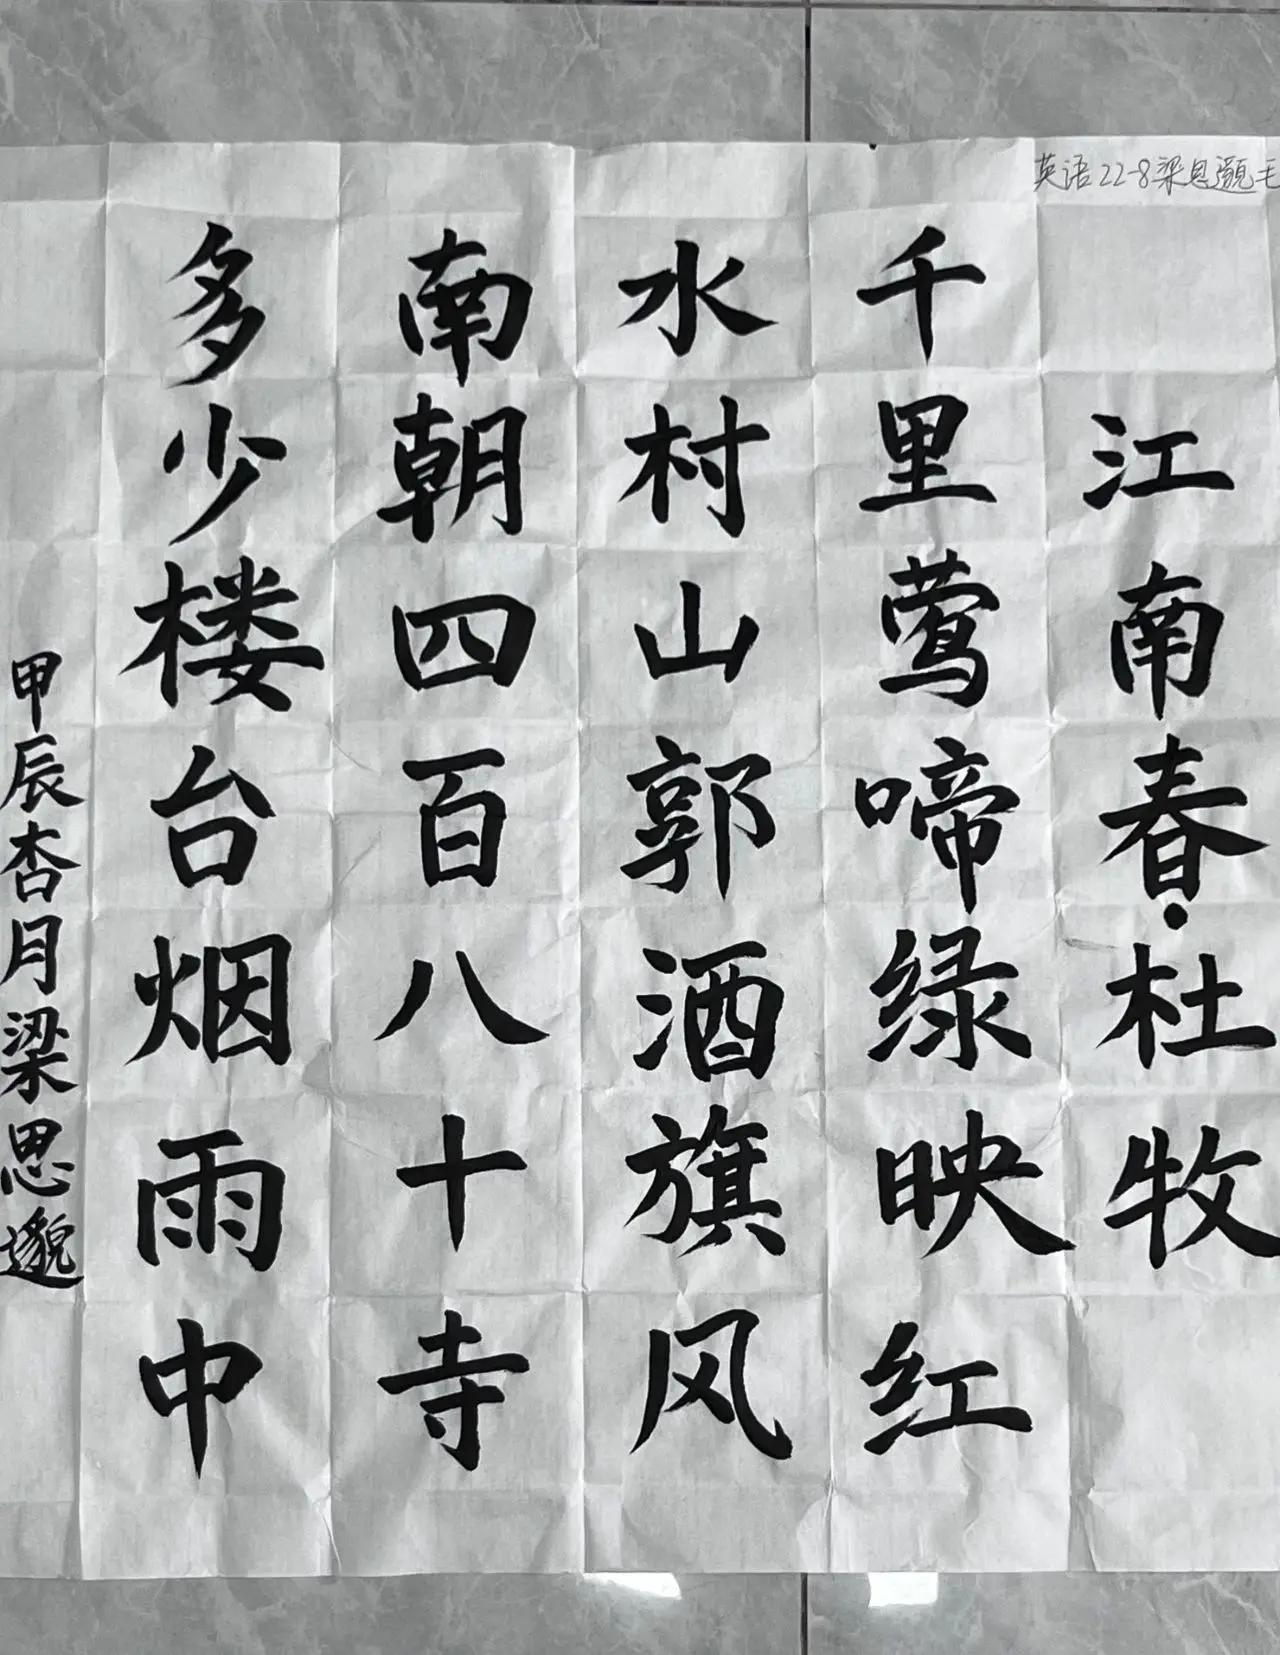 英语22-8梁思邈毛
江南春·杜牧
千里莺啼绿映红
水村山郭酒旗风
南朝四百八十寺
多少楼台烟雨中
甲辰杏月梁思邈